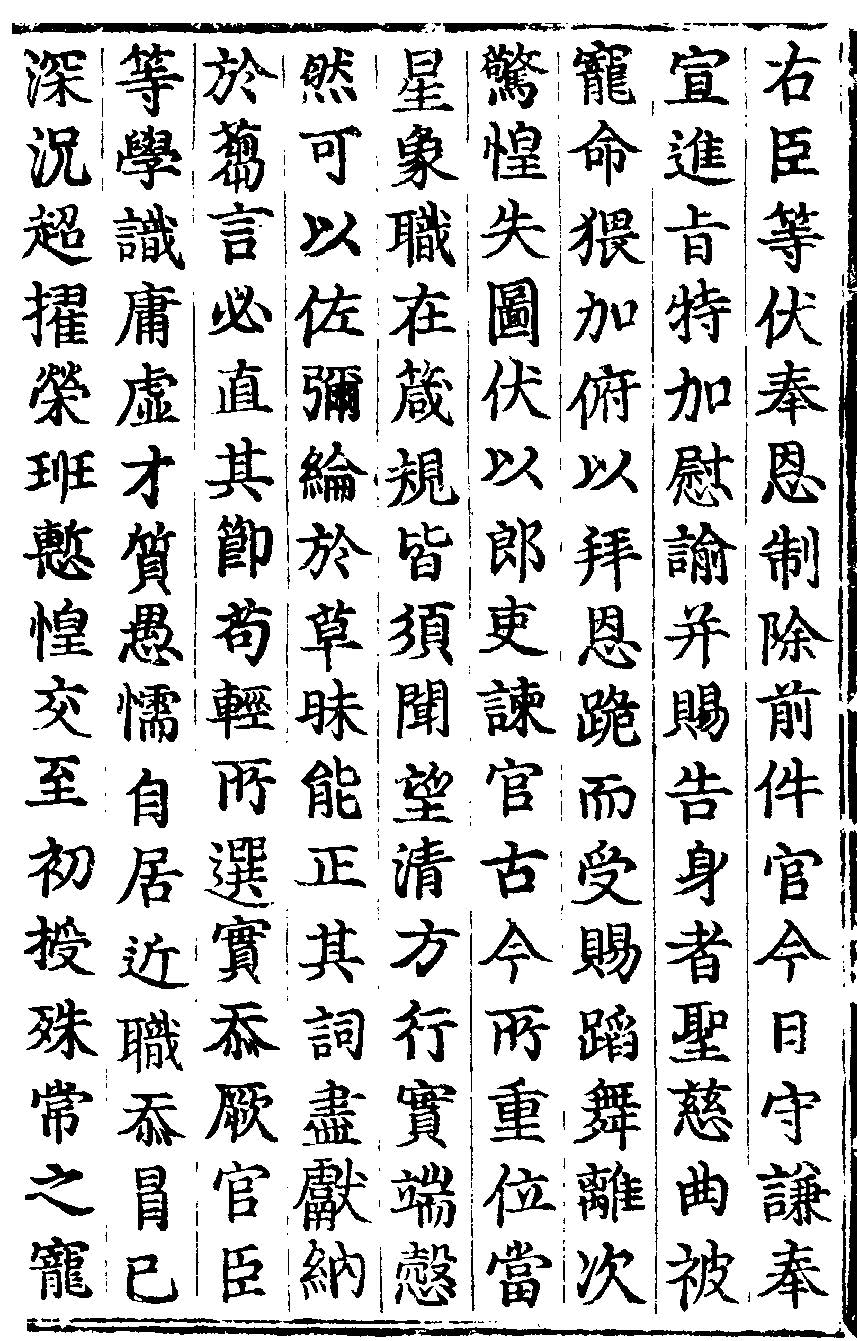 右臣等伏奉恩制除前件官今日守謙奉
宣進㫖特加慰諭并賜告身者聖慈曲被
寵命猥加俯以拜恩跪而受賜蹈舞離次
驚惶失圖伏以郎吏諫官古今所重位當
星象職在箴規皆須聞望清方行實端慤
然可以佐彌綸於草昧能正其詞盡獻納
於蒭言必直其節苟輕所選實忝厥官臣
等學識庸虛才質愚懦自居近職忝冒已
深況超擢榮班慙惶交至初授殊常之寵